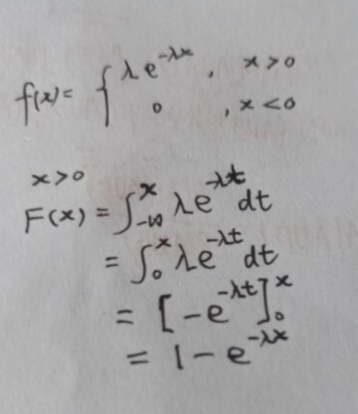 f(x) = { λe^{-λx}, x>0
0, x<0
x>0
F(x) = ∫_{-∞}^{x} λe^{-λt} dt
= ∫_{0}^{x} λe^{-λt} dt
= [-e^{-λt}]_{0}^{x}
= 1 - e^{-λx}